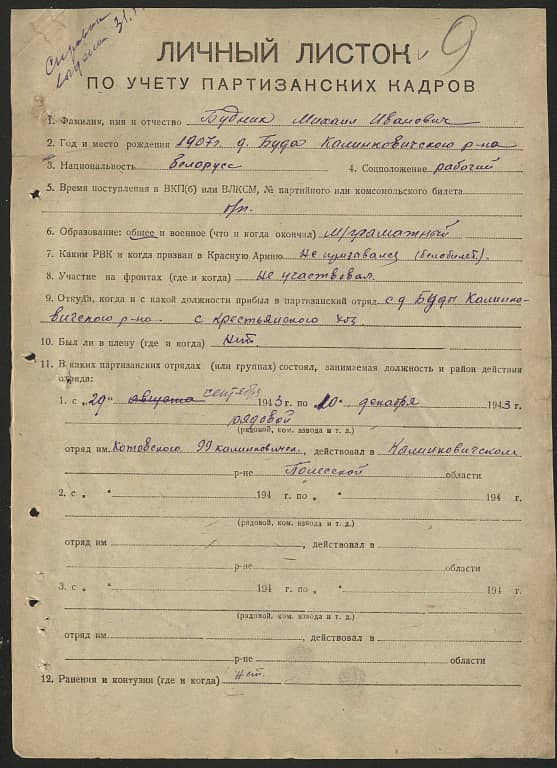 Справка
выдана 31.1
ЛИЧНЫЙ ЛИСТОК 9
ПО УЧЕТУ ПАРТИЗАНСКИХ КАДРОВ
1. Фамилия, имя и отчество Будник Михаил Иванович
2. Год и место рождения 1907г. д. Буда Калинковичского р-на
3. Национальность белорусс 4. Соцположение рабочий
5. Время поступления в ВКП(б) или ВЛКСМ, № партийного или комсомольского билета
б/п.
6. Образование: общее и военное (что и когда окончил) М/грамотный
7. Каким РВК и когда призван в Красную Армию Не призывался (белобилет).
8. Участие на фронтах (где и когда) Не участвовал.
9. Откуда, когда и с какой должности прибыл в партизанский отряд с д Буды Калинко-
вичского р-на с крестьянского хоз.
10. Был ли в плену (где и когда) Нет.
11. В каких партизанских отрядах (или группах) состоял, занимаемая должность и район действия
отряда:
1. с „29" августа сентября 1943 г. по „10" декабря 1943 г.
рядовой
(рядовой, ком. взвода и т. д.)
отряд им. Котовского 99 калинкович., действовал в Калинковичском
р-не Полесской области
2. с „ " 194 г. по „ " 194 г.
(рядовой, ком. взвода и т. д.)
отряд им , действовал в
р-не области
3. с „ " 194 г. по „ " 194 г.
(рядовой, ком. взвода и т. д.)
отряд им. , действовал в
р-не области
12. Ранения и контузии (где и когда) Нет.